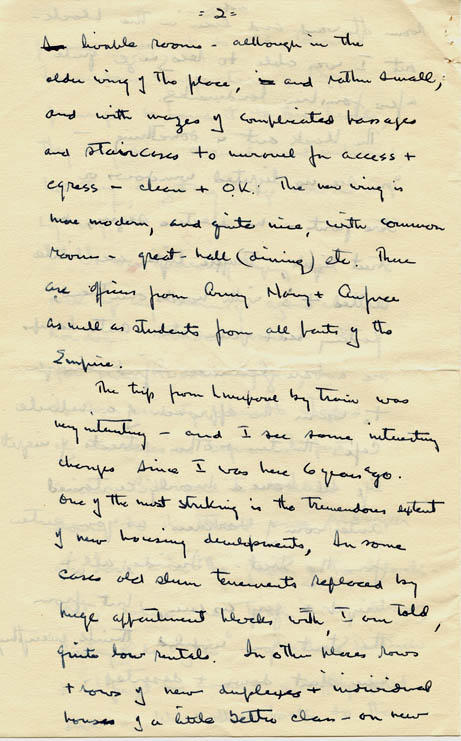 = 2 =
livable rooms - although in the
older wing of the place, and rather small,
and with mazes of complicated passages
and staircases to unravel for access +
egress - clean + O.K. The new wing is
more modern, and quite nice, with common
room - great-hall (dining) etc. There
are officers from Army Navy + Airforce
as well as students from all parts of the
Empire.
The trip from Liverpool by train was
very interesting - and I see some interesting
changes since I was here 6 years ago.
One of the most striking is the tremendous extent
of new housing developments, In some
cases old slum tenements replaced by
huge appartment blocks with, I am told,
quite low rentals. In other places rows
+ rows of new duplexes + individual
houses of a little better class - on new